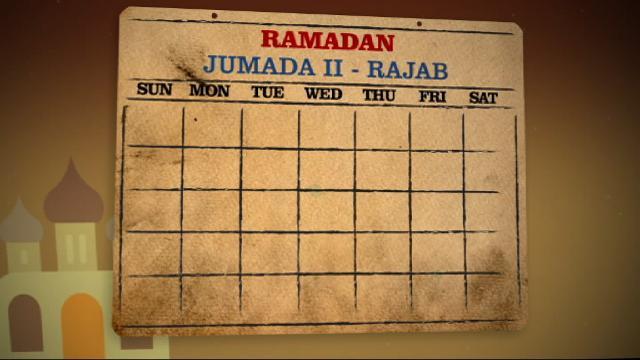 RAMADAN
JUMADA II - RAJAB
SUN MON TUE WED THU FRI SAT